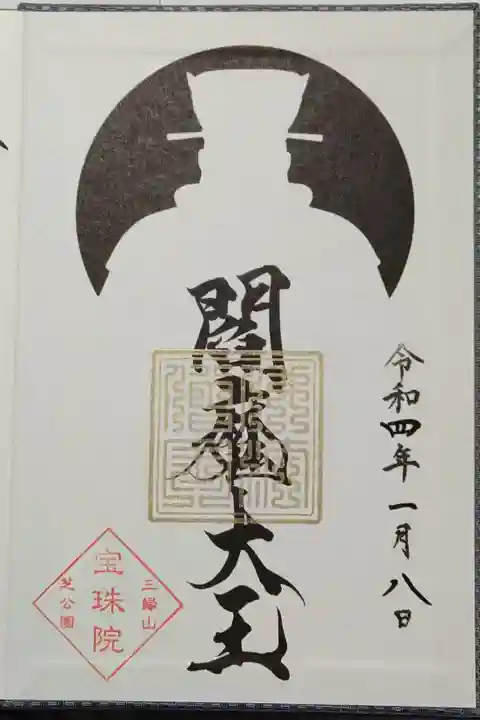 令和四年一月八日
閻魔大王
三縁山
宝珠院
芝公園